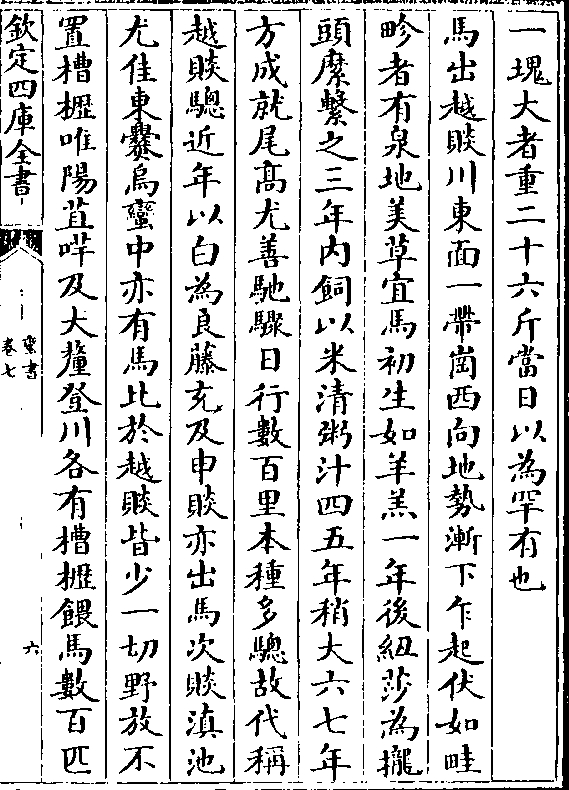 一塊大者重二十六斤當日以為罕有也
馬出越賧川東面一帶崗西向地勢漸下乍起伏如畦
畛者有泉地美草宜馬初生如羊羔一年後紐莎為攏
頭縻繫之三年内飼以米清粥汁四五年稍大六七年
方成就尾髙尤善馳驟日行數百里本種多驄故代稱
越賧驄近年以白為良藤充及申賧亦出馬次賧滇池
尤佳東爨烏蠻中亦有馬比於越賧皆少一切野放不
置槽櫪唯陽苴哶及大釐登川各有槽櫪餵馬數百匹
欽定四庫全書
蠻書
卷七
六